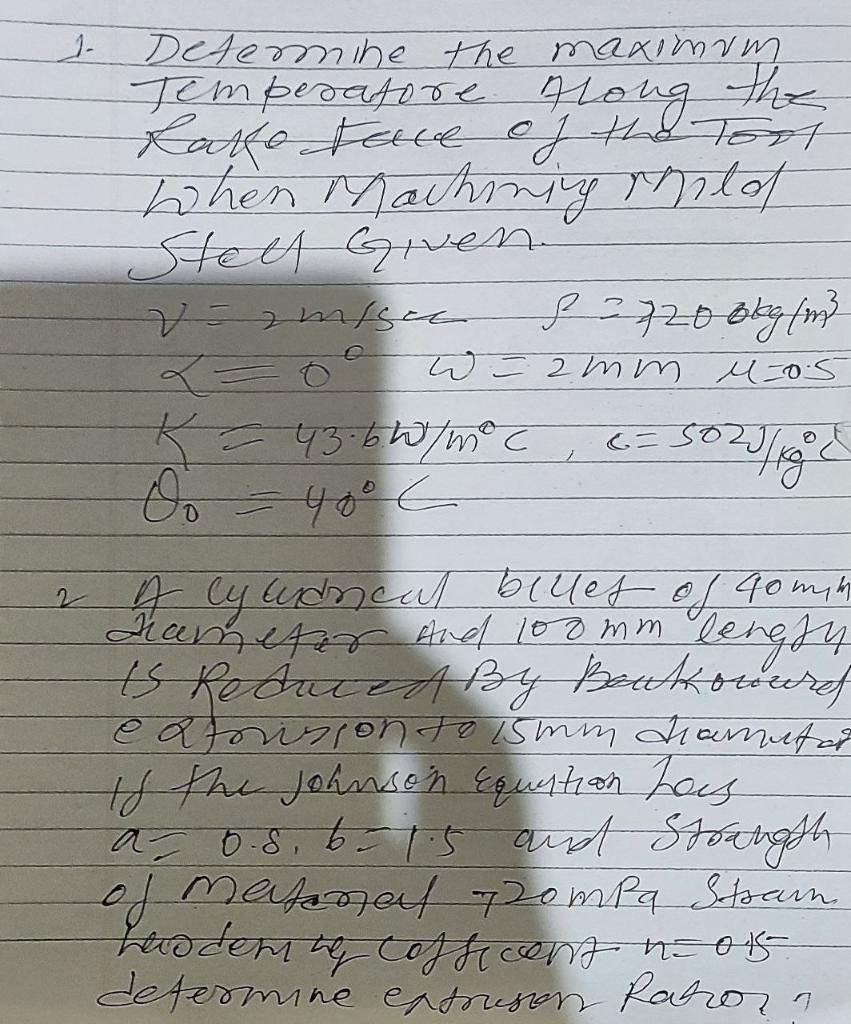 1. Determine the maximum
Temperature Along the
Rake Face of the Tool
When Machining Mild
Steel Given.
V = 2m/sec ρ = 7200kg/m³
α = 0° w = 2mm μ=0.5
K = 43.6W/m°C, c= 502J/kg°C
θ₀ = 40°C
2 A cylindrical billet of 40mm
diameter And 100mm length
is Reduced By Backward
extrusion to 15mm diameter
If the Johnson Equation has
a= 0.8, b=1.5 and Strength
of Material 720mPa Strain
hardening Cofficent n=0.15
determine extrusion Ratio?